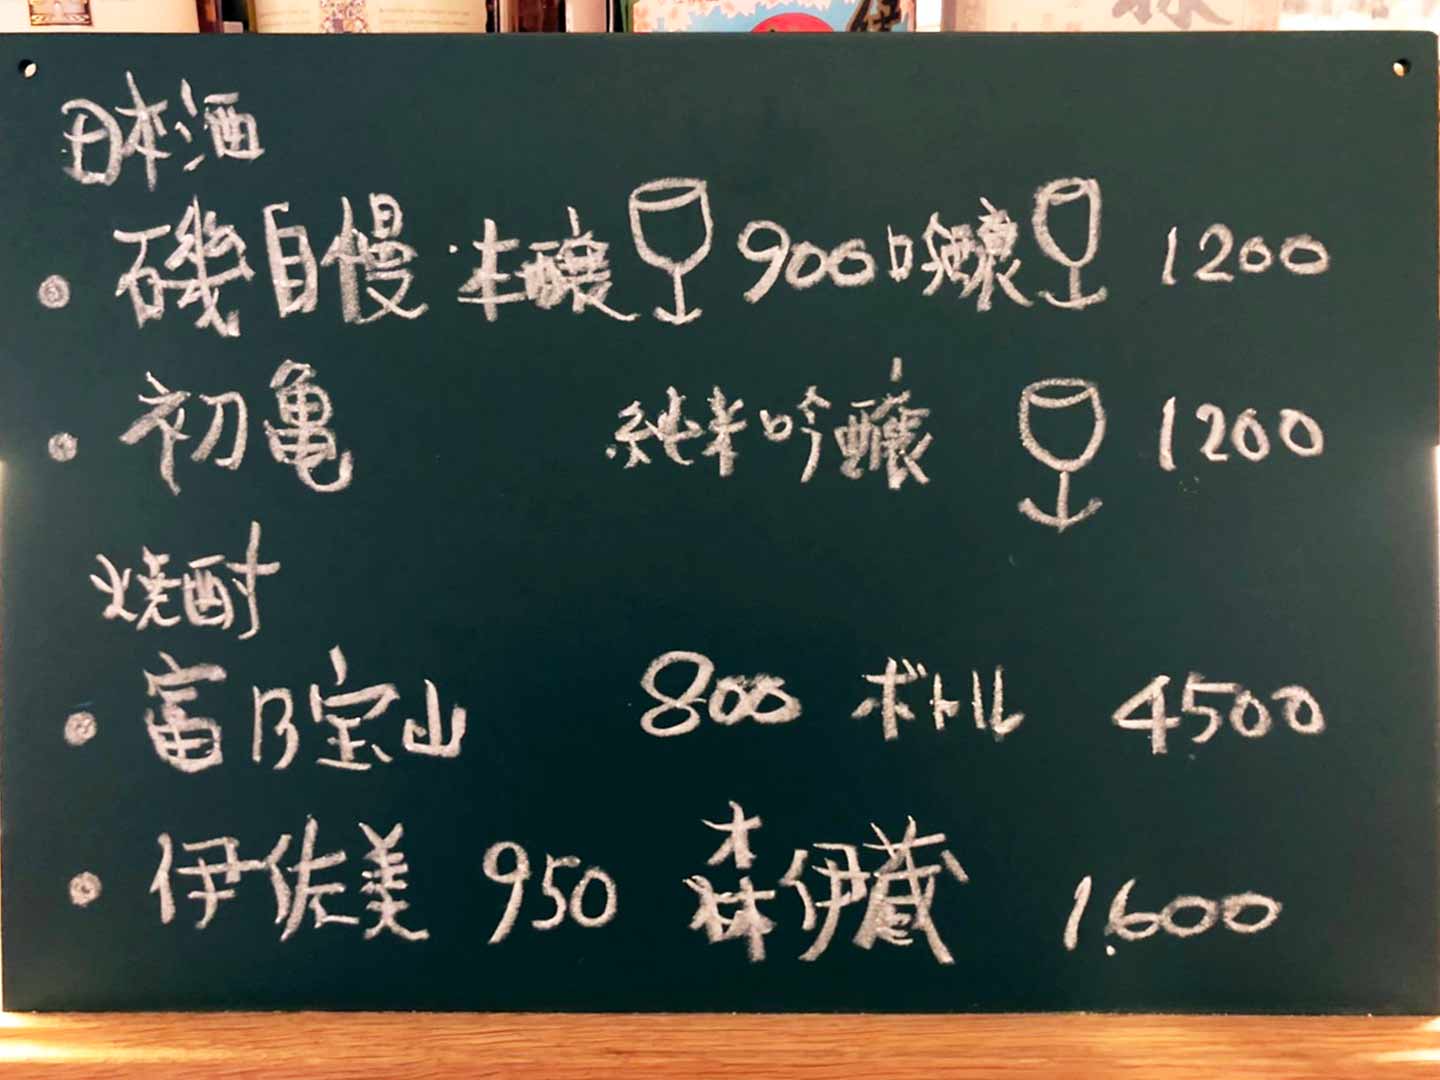 日本酒
磯自慢 本醸 900 吟醸 1200
初亀 純米吟醸 1200
焼酎
富乃宝山 800 ボトル 4500
伊佐美 950 森伊蔵 1.600